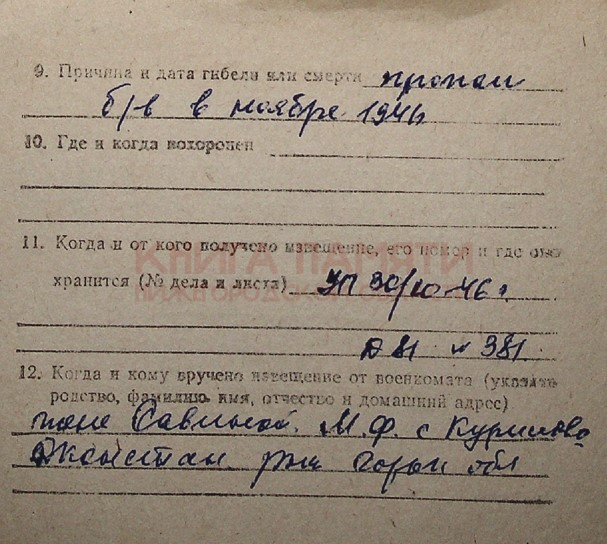 9. Причина и дата гибели или смерти пропал
б/в в ноябре 1946
10. Где и когда похоронен
11. Когда и от кого получено извещение, его номер и где оно
КНИГА ПАМЯТИ
хранится (№ дела и листа) УП 30/10-46 г
НИЖЕГОРОДСКОЙ ОБЛАСТИ
Д 81 л 381
12. Когда и кому вручено извещение от военкомата (указать
родство, фамилию имя, отчество и домашний адрес)
жене Савиной М.Ф. с
рн Горьк обл